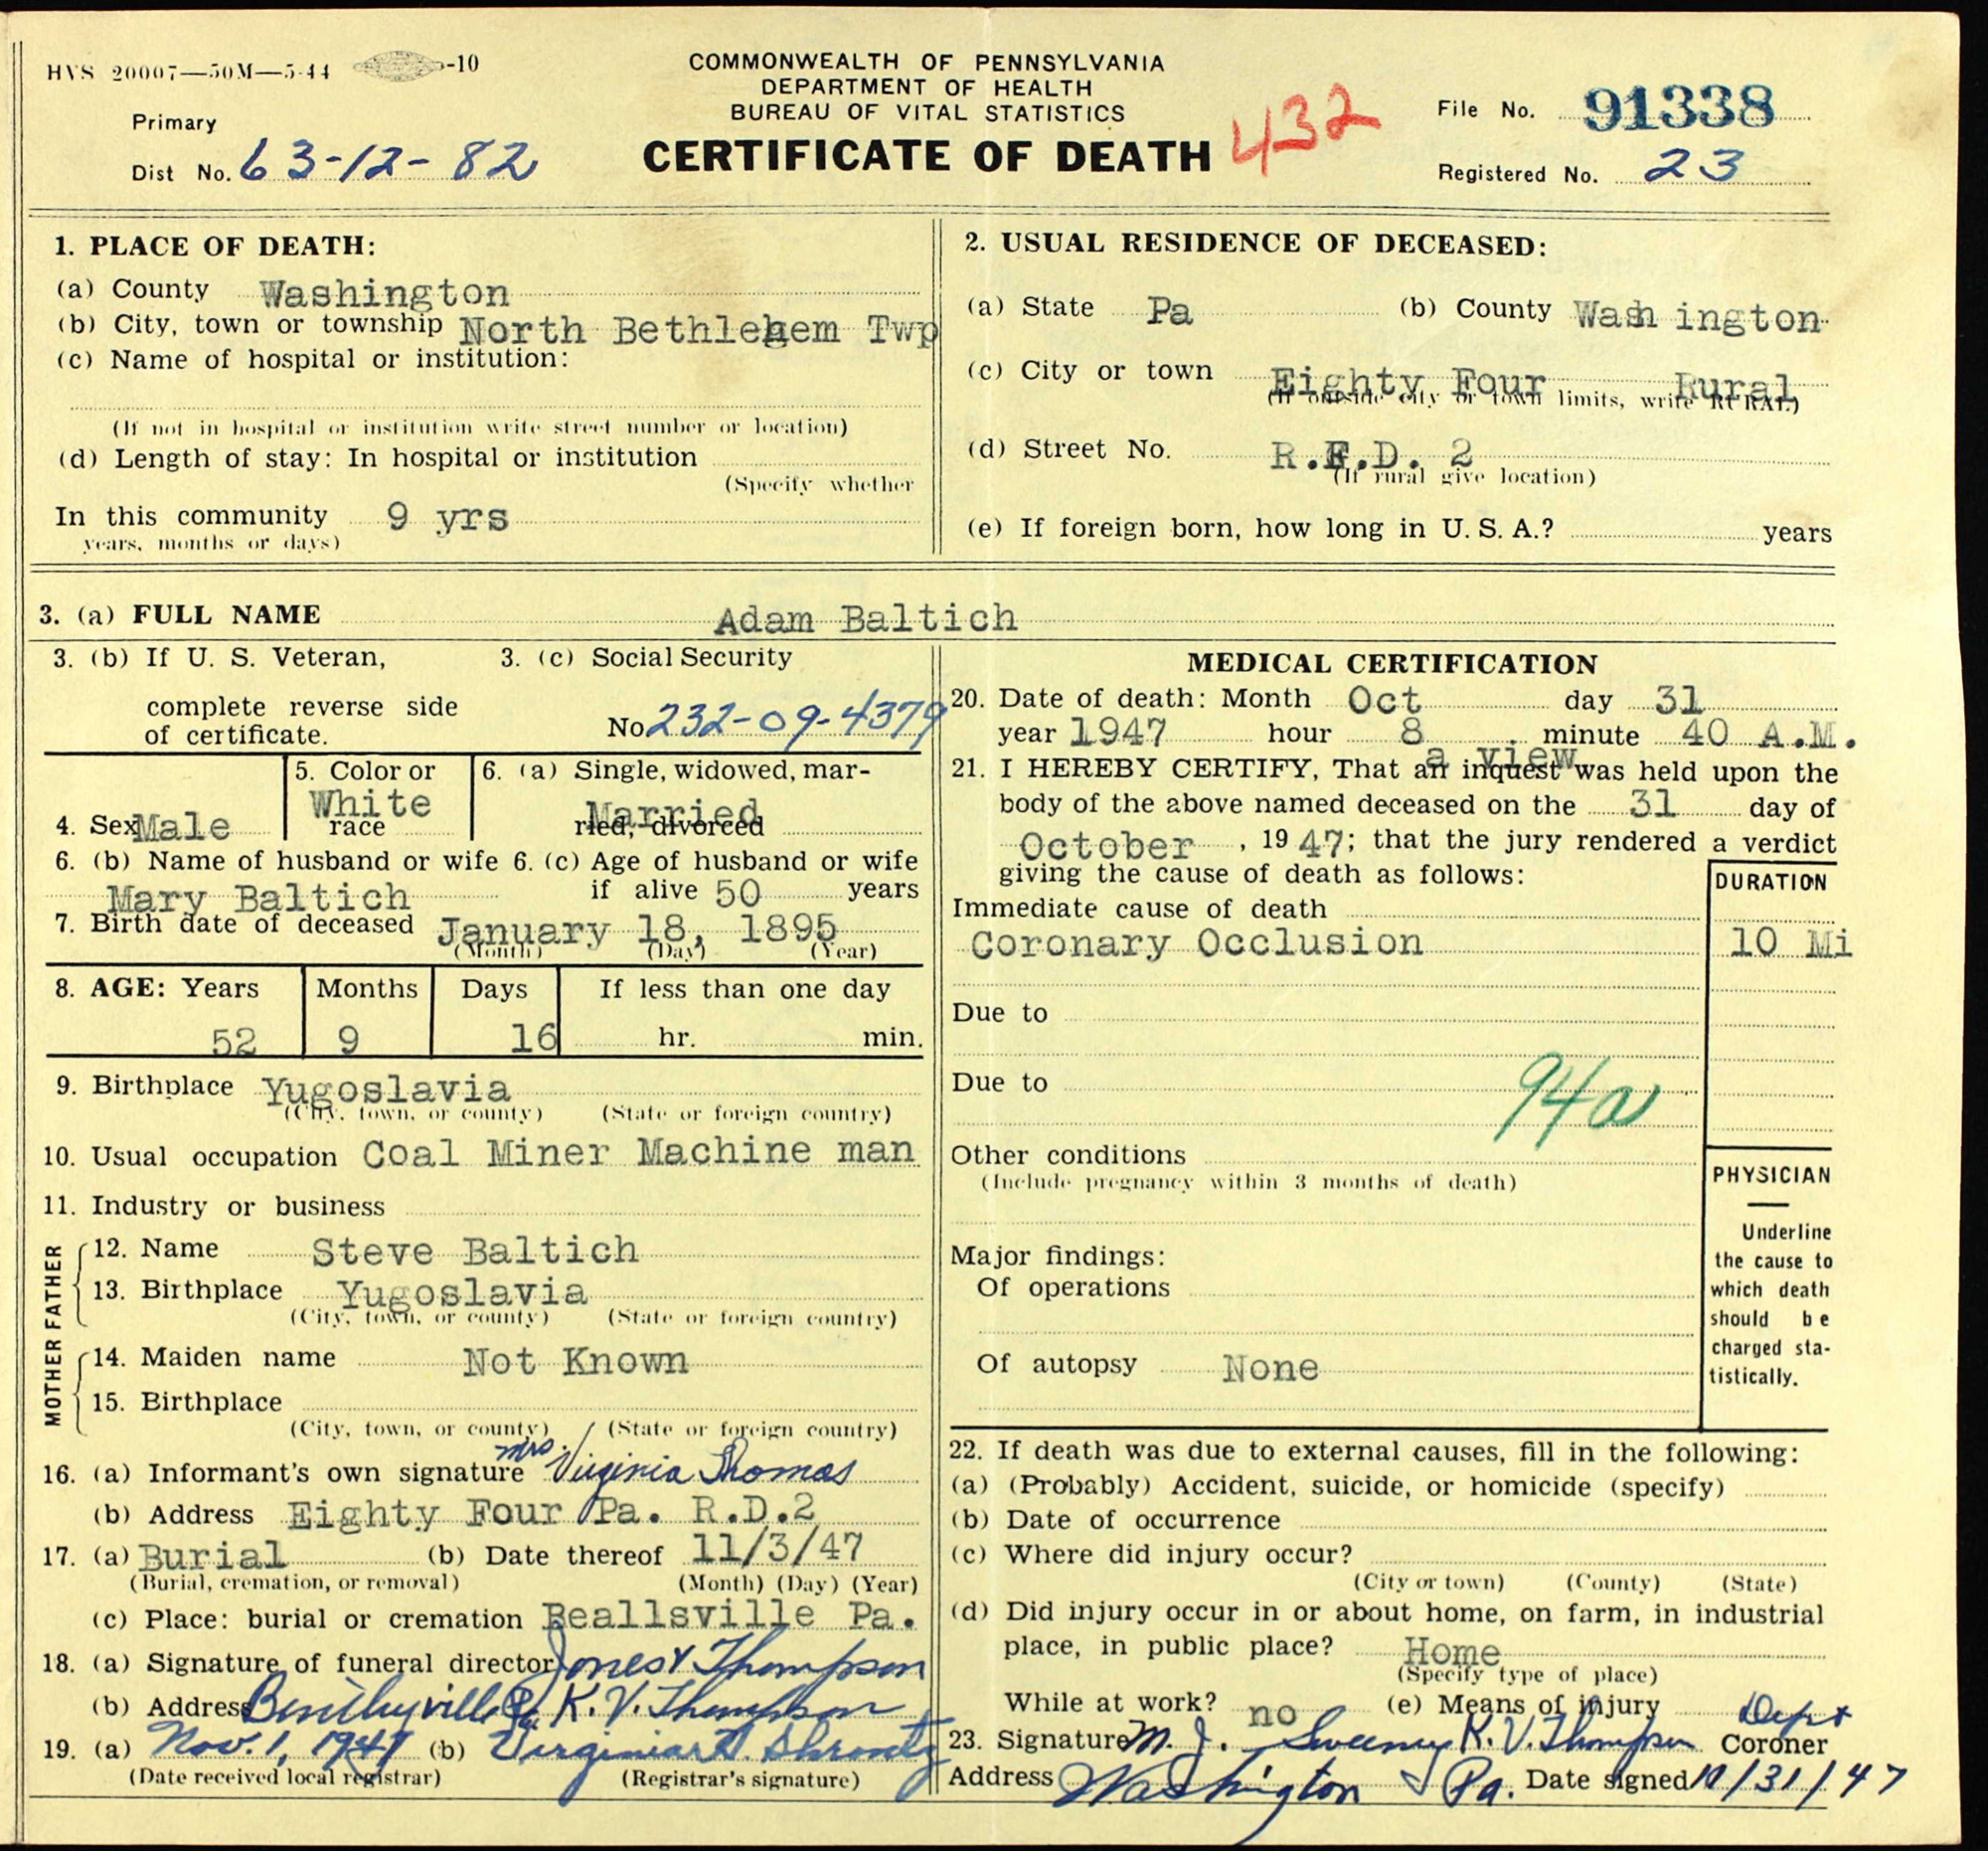 HVS 20007—50M—5-44 -10
COMMONWEALTH OF PENNSYLVANIA
DEPARTMENT OF HEALTH
BUREAU OF VITAL STATISTICS
CERTIFICATE OF DEATH
432
Primary
Dist No. 63-12-82
File No. 91338
Registered No. 23
1. PLACE OF DEATH:
(a) County Washington
(b) City, town or township North Bethlehem Twp
(c) Name of hospital or institution:
(If not in hospital or institution write street number or location)
(d) Length of stay: In hospital or institution
(Specify whether
In this community 9 yrs
years, months or days)
2. USUAL RESIDENCE OF DECEASED:
(a) State Pa (b) County Wash ington
(c) City or town Eighty Four Rural
(If outside city or town limits, write RURAL)
(d) Street No. R.F.D. 2
(If rural give location)
(e) If foreign born, how long in U. S. A.? years
3. (a) FULL NAME Adam Baltich
3. (b) If U. S. Veteran,
complete reverse side
of certificate.
3. (c) Social Security
No 232-09-4379
4. Sex Male
5. Color or
White
race
6. (a) Single, widowed, mar-
Married
ried, divorced
6. (b) Name of husband or wife
Mary Baltich
6. (c) Age of husband or wife
if alive 50 years
7. Birth date of deceased January 18, 1895
(Month) (Day) (Year)
8. AGE: Years Months Days If less than one day
52 9 16 hr. min.
9. Birthplace Yugoslavia
(City, town, or county) (State or foreign country)
10. Usual occupation Coal Miner Machine man
11. Industry or business
FATHER
12. Name Steve Baltich
13. Birthplace Yugoslavia
(City, town, or county) (State or foreign country)
MOTHER
14. Maiden name Not Known
15. Birthplace
(City, town, or county) (State or foreign country)
16. (a) Informant's own signature Mrs. Virginia Thomas
(b) Address Eighty Four Pa. R.D.2
17. (a) Burial (b) Date thereof 11/3/47
(Burial, cremation, or removal) (Month) (Day) (Year)
(c) Place: burial or cremation Beallsville Pa.
18. (a) Signature of funeral director Jones & Thompson
(b) Address Bentleyville Pa. K. V. Thompson
19. (a) Nov. 1, 1947 (b) Virginia Shrontz
(Date received local registrar) (Registrar's signature)
MEDICAL CERTIFICATION
20. Date of death: Month Oct day 31
year 1947 hour 8 minute 40 A.M.
a view
21. I HEREBY CERTIFY, That an inquest was held upon the
body of the above named deceased on the 31 day of
October, 1947; that the jury rendered a verdict
giving the cause of death as follows:
DURATION
Immediate cause of death
Coronary Occlusion 10 Mi
Due to
Due to
94a
Other conditions
(Include pregnancy within 3 months of death)
Major findings:
Of operations
Of autopsy None
PHYSICIAN
Underline
the cause to
which death
should be
charged sta-
tistically.
22. If death was due to external causes, fill in the following:
(a) (Probably) Accident, suicide, or homicide (specify)
(b) Date of occurrence
(c) Where did injury occur?
(City or town) (County) (State)
(d) Did injury occur in or about home, on farm, in industrial
place, in public place? Home
(Specify type of place)
While at work? no (e) Means of injury
Dept
23. Signature M. J. Sweeney K. V. Thompson Coroner
Address Washington Pa. Date signed 10/31/47